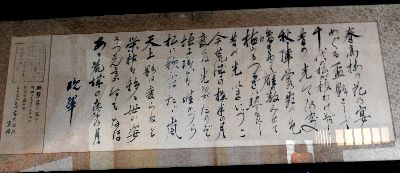 春高楼の花の宴
めぐる盃影さして
千代の松が枝わけ出でし
昔の光今いづこ
秋陣営の霜の色
鳴き行く雁の数見せて
植うるつるぎに照りそひし
昔の光今いづこ
今荒城の夜半の月
変らぬ光たがためぞ
垣に残るはただかつら
松に歌ふはただ嵐
天上影は変らねど
栄枯は移る世の姿
うつさんとてか今もなほ
あゝ荒城の夜半の月
晩翠